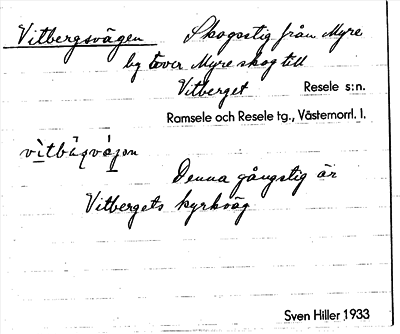 Vitbergsvägen Skogsstig från Myre
by över Myreskog till
Vitberget Resele s:n.
Ramsele och Resele tg., Västernorrl. l.
Denna gångstig är
Vitbergets kyrkväg
Sven Hiller 1933